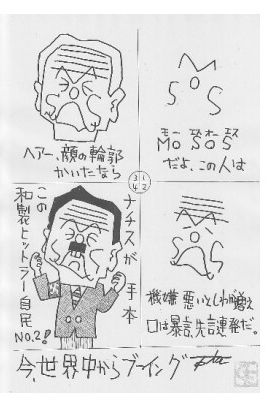 MoSOS
だよ、この人は
機嫌悪いとしわが増え
口は暴言、失言連発だ。
ヘアー、顔の輪郭
かいたなら
3 1
4 2
ナチスが手本
この
和製ヒットラー自民
NO.2!
今、世界中からブーイング